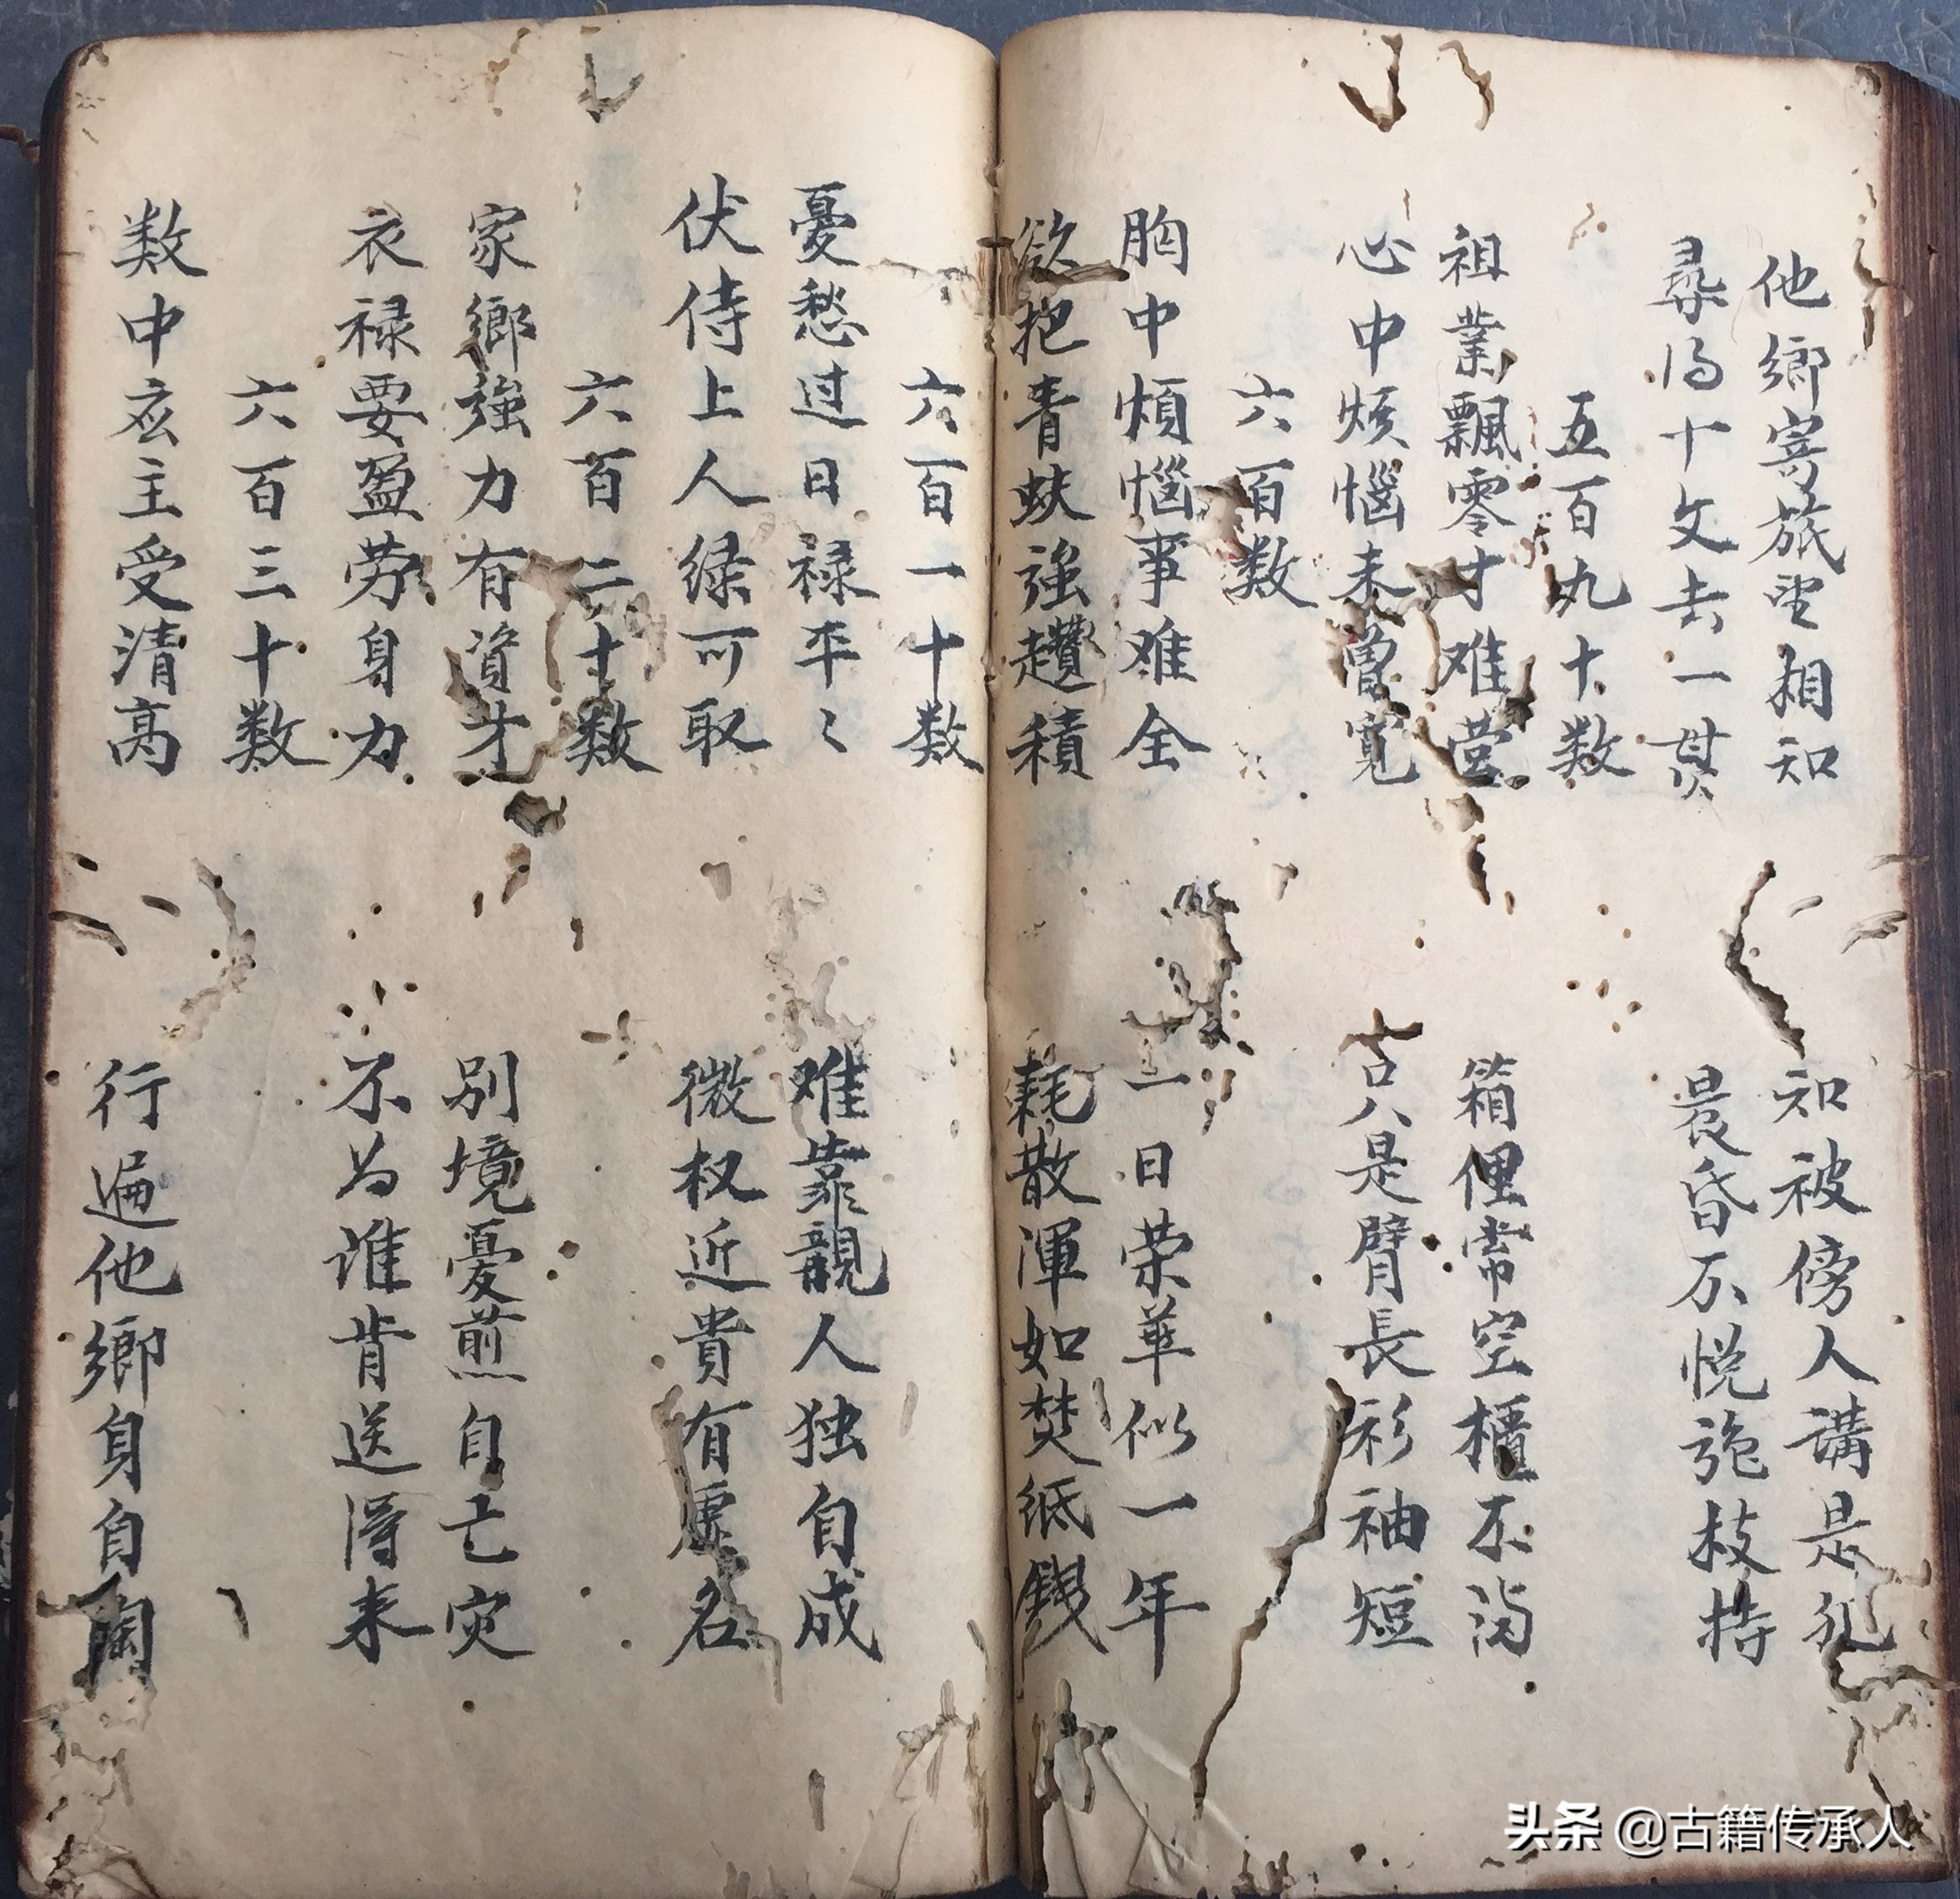 他鄉寄旅望相知　知被傍人講是非
尋得十文去一貫　晨昏不悦施枝持
五百九十数
祖業飄零寸难营　箱俚常空櫃不满
心中烦惱未曾寬　古八是臂長衫袖短
六百数
胸中煩惱事难全　一日荣華似一年
欲把青蚨強趲積　耗散渾如焚纸錢
六百一十数
憂愁过日禄平〻　难靠親人独自成
伏侍上人绿可取　微权近貴有虚名
六百二十数
家鄉強力有資才　别境憂煎自亡灾
衣禄要盈劳身力　不为谁肯送得来
六百三十数
数中玄主受清高　行遍他鄉身自陶
头条 @古籍传承人